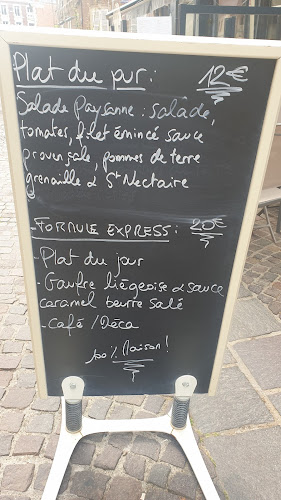 Plat du jour : 12€
Salade Paysanne : salade,
tomates, filet émincé sauce
provençale, pommes de terre
grenaille & St Nectaire
- FORMULE EXPRESS : 20€
- Plat du jour
- Gaufre liégeoise & sauce
caramel beurre salé
- Café / Déca
100% Maison !